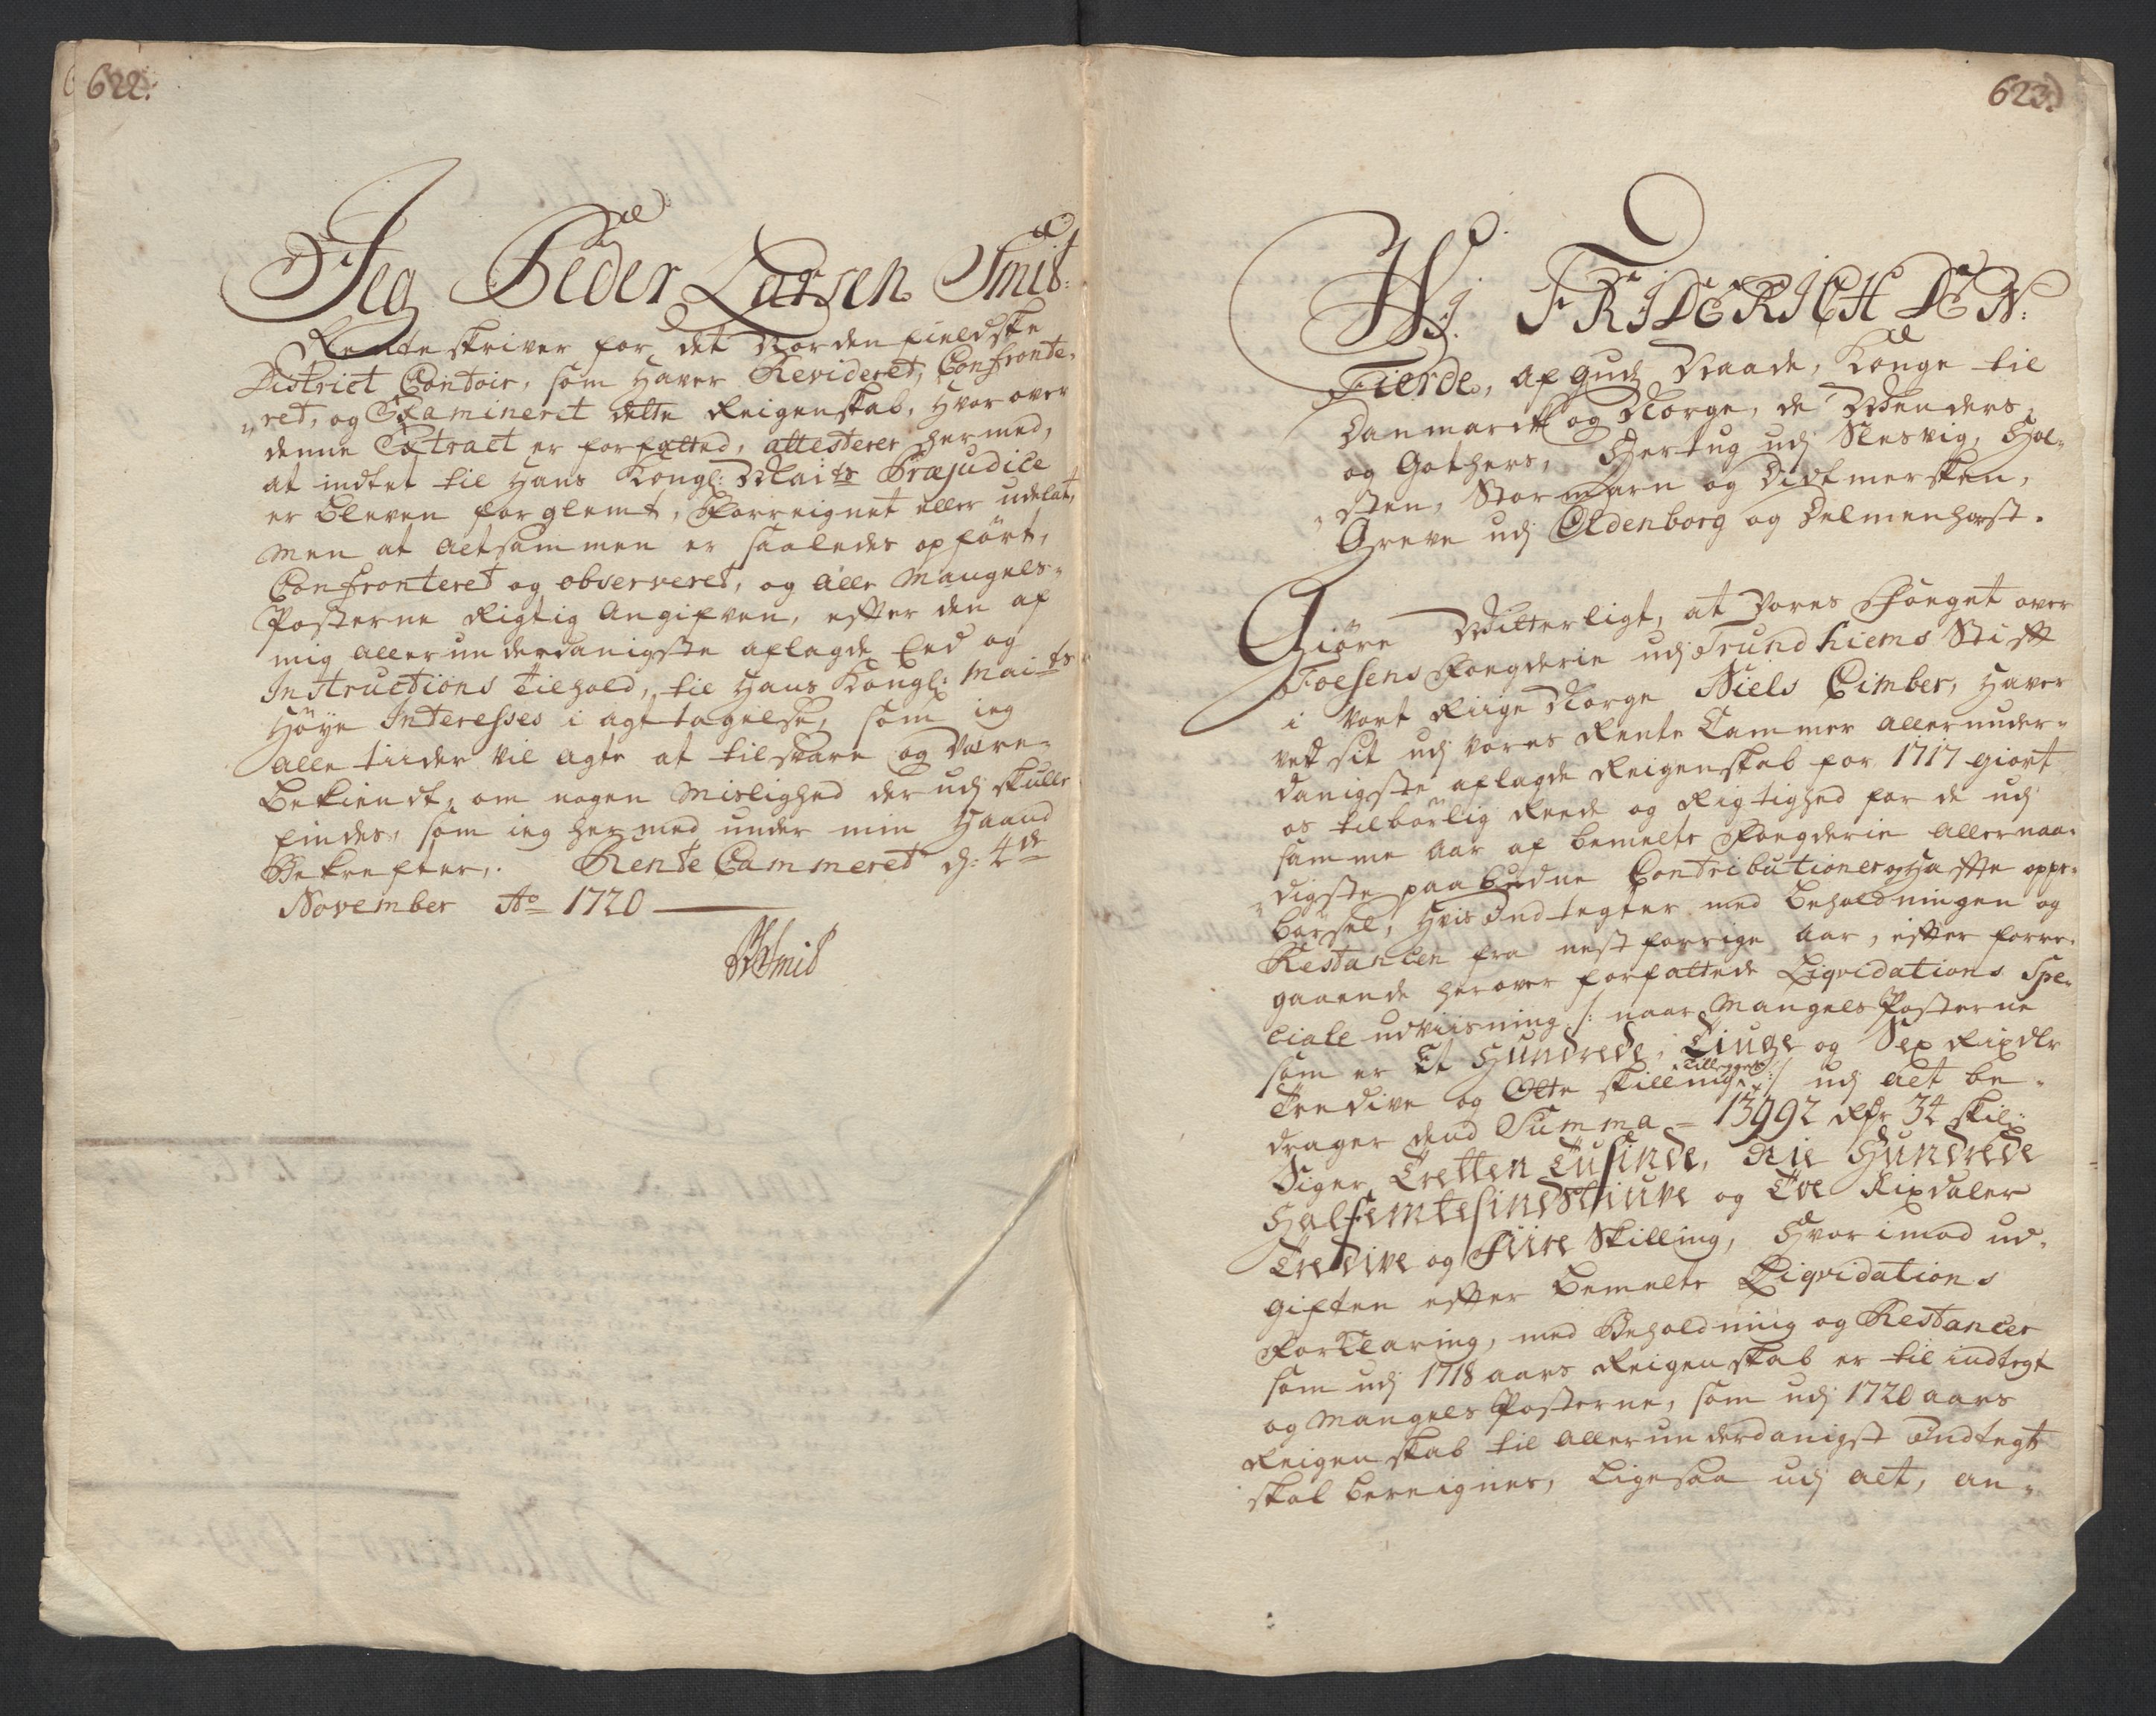 622.
Jeg Peder Larsen Smit:
Renteskriver for det Nordenfieldske
District Contoir, som haver Revideret, Confronte-
"ret, og Examineret dette Reigenskab, hvorover
denne Extract er forfatted, attesterer hermed,
at indtet til Hans Kongl: Maits Præjudice
er bleven forglemt, Forreignet eller udelat,
men at altsammen er saaledes opført,
Confronteret og observeret, og alle Mangels-
Posterne Rigtig Angifven, efter den af
mig allerunderdanigste aflagde Eed og
Instructions Tilhold, til Hans Kongl: Maits
Høye Interesses i agttagelse, som ieg
alle tiider vil agte at tilsvare og være
bekiendt, om nogen Mislighed der udj skulle
findes, som ieg hermed under min Haand
Bekrefter. Rente Cammeret d: 4de
November Ao 1720
PLSmit
623.
Wj. FRIDERICH DEN:
Fierde, af Guds Naade, Konge til
Danmarck og Norge, de Wenders
og Gothers, Hertug udj Slesvig, Hol-
"sten, Stormarn og Didtmersken,
Greve udj Oldenborg og Delmenhorst.
Giøre Witterligt, at Vores Foeget over
Foesens Foegderie udj Trundhiems Stift
i Vort Riige Norge Niels Cimber, haver
ved sit udj Vores Rente Cammer allerunder-
danigste aflagde Reigenskab for 1717 giort
os tilbørlig Reede og Rigtighed for de udj
samme Aar af bemelte Foegderie Allernaa-
"digste paabudne Contributioner og Hafte oppe-
børsel, hvis Indtegter med beholdningen og
Restancen fra nest forrige Aar, efter forre-
gaaende herover forfattede Liqvidations Spe-
ciale udviisning /: naar Mangels Posterne
som er Et Hundrede, Tiuge og Sex Rixdlr
Tredive og Otte skilling Tillegges :/ udj alt be-
drager dend Summa = 13992 Rdr 34 skil:
Siger Tretten Tusinde, Nie Hundrede
Halfemtesindstiuve og Toe Rixdaler
Tredive og Fiire Skilling, Hvorimod ud-
giften efter bemelte Liqvidations
Forklaring, med Beholdning og Restancer
som udj 1718 aars Reigenskab er til indtegt
og Mangels Posterne, som udj 1720 aars
Reigenskab til allerunderdanigst Indtegt
skal bereignes, Ligesaa udj alt, an-